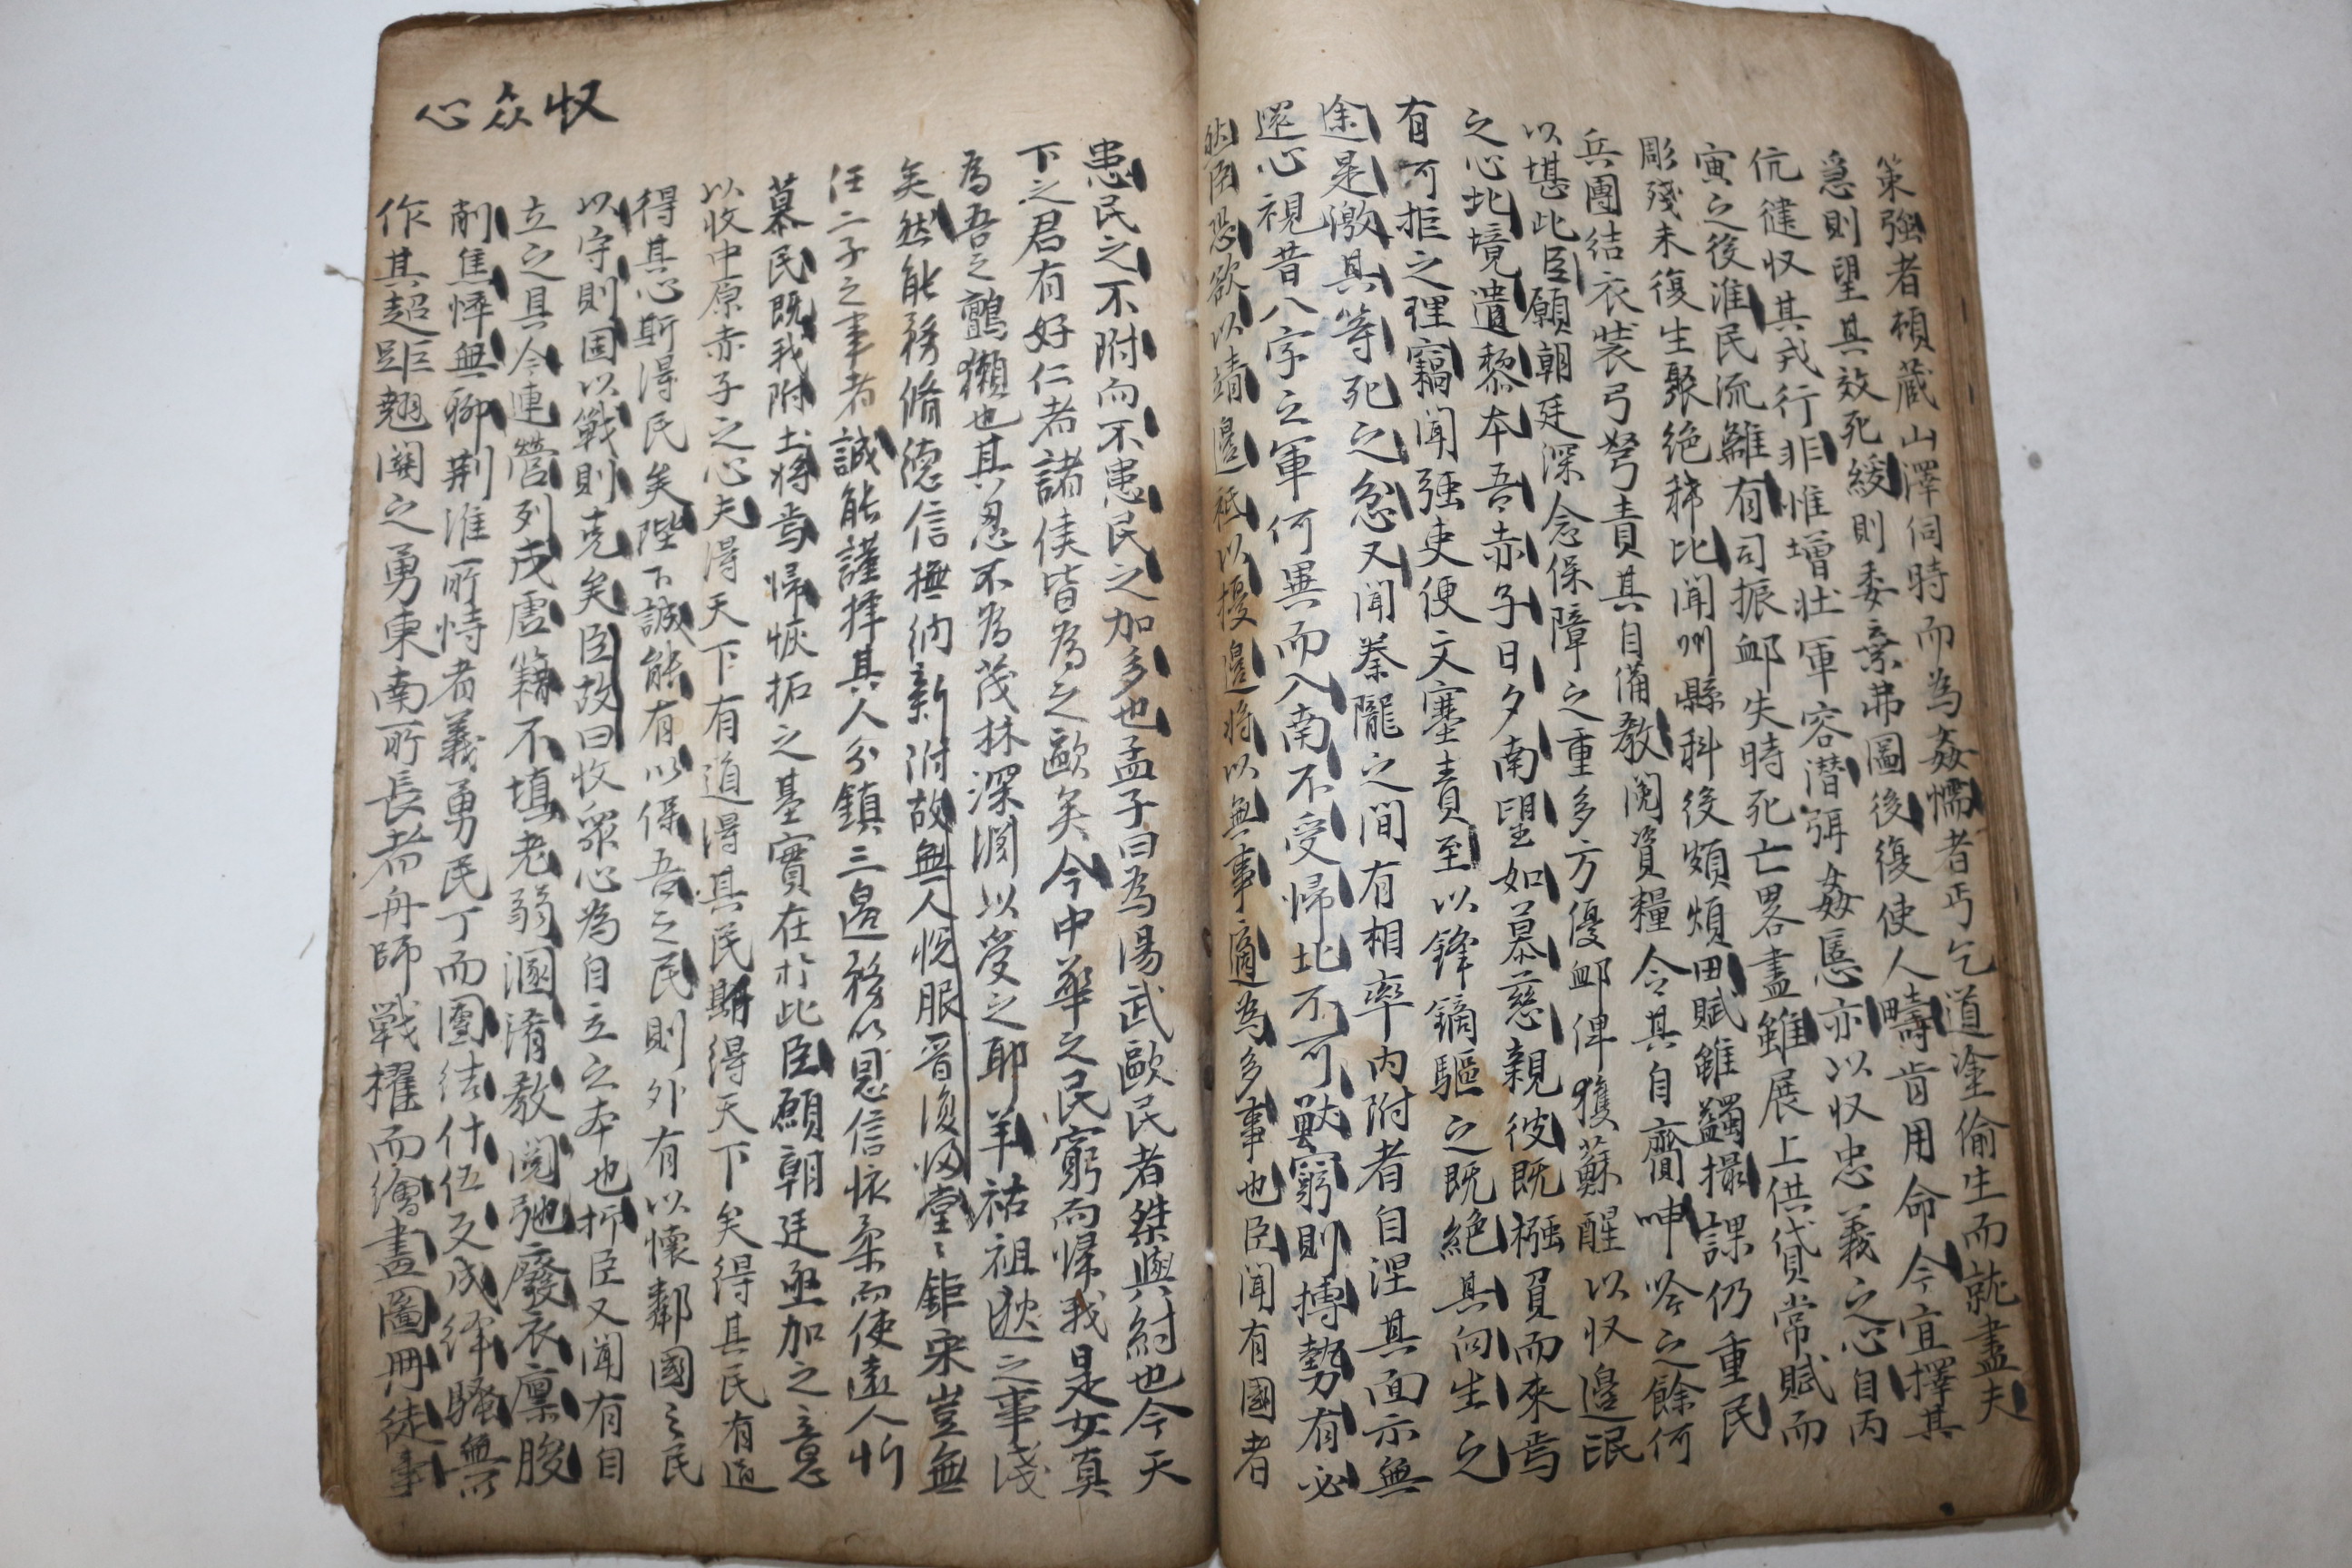 策強者頓蔵山澤伺時而為姦懦者丐乞道塗偷生而就盡夫
急則望其效死緩則委棄弗圖後復使人疇肯用命今宜擇其
伉健収其戎行非惟增壮軍容潜弭姦慝亦以収忠義之心自丙
寅之後淮民流離有司振邺失時死亡畧盡雖展上供貸常賦而
彫殘未復生聚絶稀比聞州縣科役頗煩田賦雖蠲撮課仍重民
兵團結衣装弓弩責其自備教阅資糧令其自齎呻吟之餘何
以堪此臣願朝廷深念保障之重多方優邺俾獲蘇醒以収邉氓
之心北境遺黎本吾赤子日夕南望如慕慈親彼既襁負而來焉
有可拒之理竊聞强吏便文塞責至以鋒鏑驅之既絶其向生之
途是激其等死之忿又聞秦隴之間有相率内附者自涅其面示無
還心視昔八字之軍何異而入南不受帰北不可獸窮則搏勢有必
然臣恐欲以靖邉祗以擾邉将以無事適為多事也臣聞有國者
患民之不附而不患民之加多也孟子曰為湯武歐民者桀與紂也今天
下之君有好仁者諸侯皆為之歐矣今中華之民窮而帰我是女真
為吾之鸇獺也其忍不為茂林深淵以受之耶羊祜祖逖之事淺
矣然能務脩德信撫納新附故無人悦服晋復帰堂〻鉅宋豈無
任二子之事者誠能謹擇其人分鎮三邉務以恩信懐柔而使遠人忻
慕民既我附土将焉帰恢拓之基實在於此臣願朝廷亟加之意
以收中原赤子之心夫得天下有道得其民斯得天下矣得其民有道
得其心斯得民矣陛下誠能有以保吾之民則外有以懷鄰國之民
以守則固以戰則克矣臣故曰收衆心為自立之本也抑臣又聞有自
立之具今連營列戍虚籍不填老弱溷淆教閲弛廢衣廪朘
削焦悴無聊荆淮所恃者義勇民丁而團結什伍反成繹騷無以
作其超距翹關之勇東南所長者舟師戰櫂而繪畫圖冊徒事
収众心